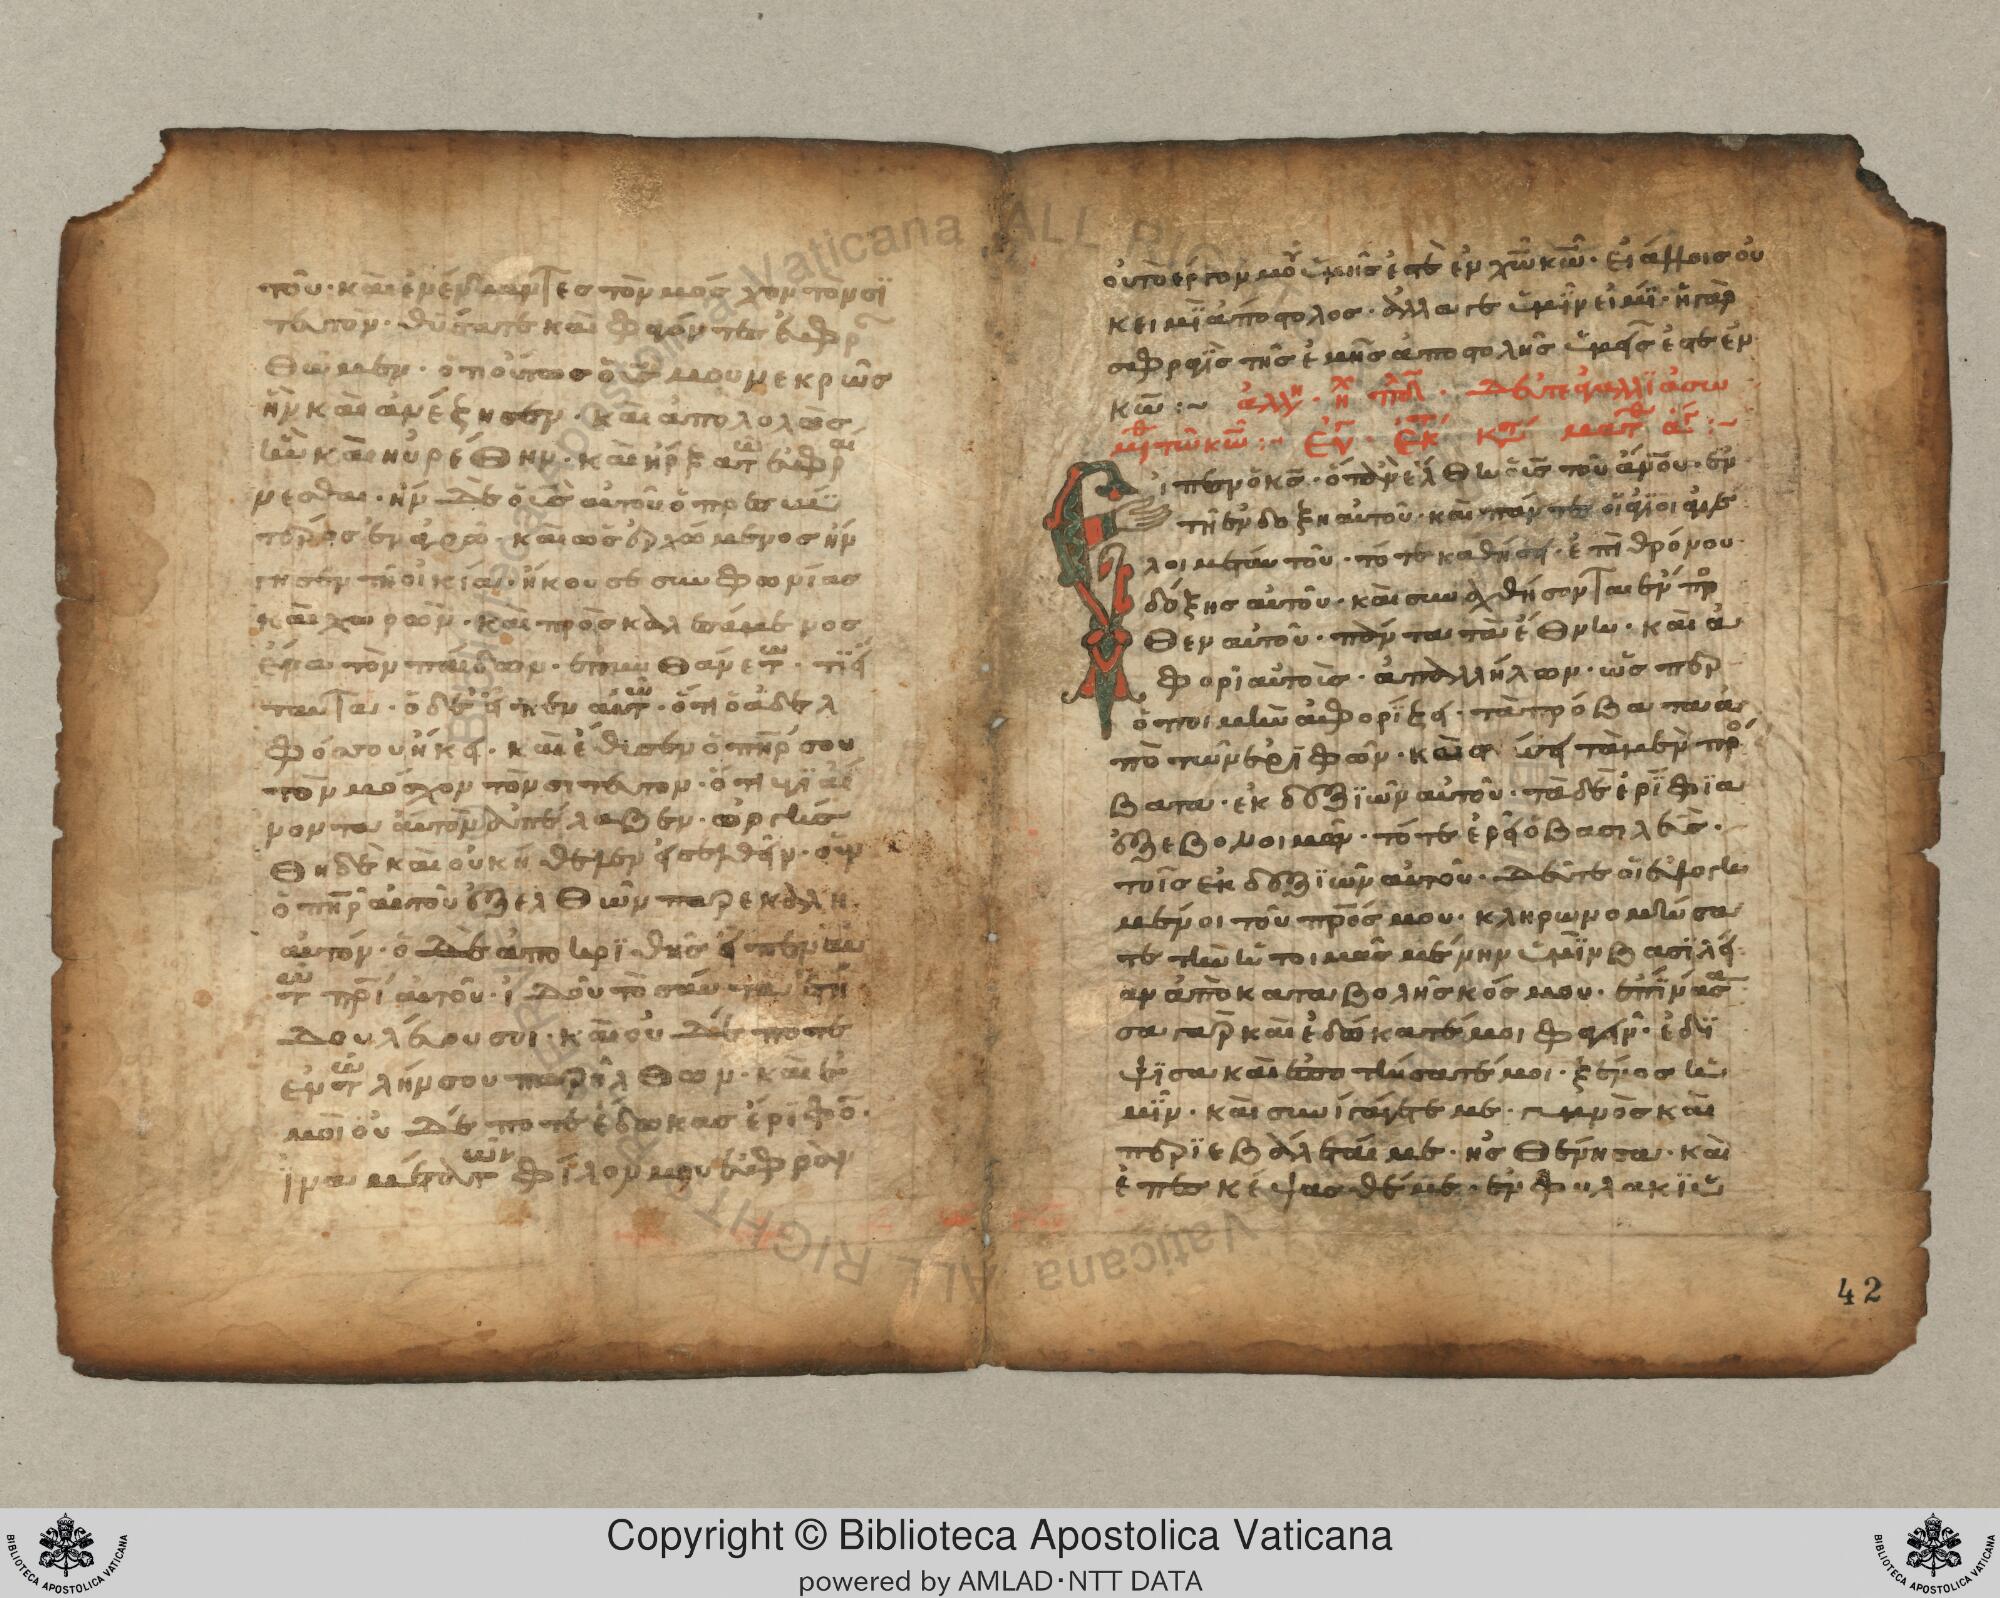 του· καὶ ἐνέγκαντες τὸν μόσχον τὸν σϊ
τευτὸν· θύσατε καὶ φαγόντες εὐφρ
θῶμεν· ὅτι οὗτος ὁ υἱός μου νεκρὸς
ἦν καὶ ἀνέζησεν· καὶ ἀπολολὼς
ἦν καὶ ηὑρέθην· καὶ ἤρξατω εὐφραί
νεσθαι· ἦν δὲ ὁ υἱὸς αὐτοῦ ὁ πρεσβύ
τερος ἐν ἀγρῶ· καὶ ὡς ἐρχόμενος ἤγ
γησεν τῆ οἰκία· ἤκουσε συνφωνίας
καὶ χωρῶν· καὶ προσκαλεσάμενος
ἕνα τὸν παίδων· ἐπυνθάνετω· τί εἴ
ταῦτα· ὁ δὲ εἶπεν αὐτῶ· ὅτι ὁ ἀδελ
φός σου ἥκει· καὶ ἔθισεν ὁ πηρ σου
τὸν μόσχον τὸν σιτευτον· ὅτι ὑγιαί
νοντα αὐτον ἀπέλαβεν· ὀργίσ
θη δὲ καὶ οὐκ ἤθελεν εἰσελθεῖν· ὁ οὖν
ὁ πηρ αὐτοῦ ἐξελθῶν παρεκάλη
αὐτον· ὁ δὲ ἀποκριθῆς εἶπεν αὐ
τῶ πρι αὐτοῦ· ἰδοῦ τοσαῦτα ἔτη
δουλεύου συι· καὶ οὐδέποτε
ἐντωλήν σου παρῆλθων· καὶ ἐ
μοὶ οὐδέποτε ἔδωκας ἐρίφο·
ἵνα μετὰ τῶν φίλον μου εὐφραν
οὐ τὸ ἔργον μου ὑμῆς ἐστὲ ἐν χω κω· εἰ ἄλλοις οὐ
κ εἰμῒ ἀπόστολος· ἀλλά γε ὑμῖν εἰμΐ· ἡ γὰρ
σφραγΐς τῆς ἐμῆς ἀποστολῆς ὑμεῖς ἐστε ἐν
κω :~ ἀλλη· ἠχ πλ· Δεῦτε ἀγαλλϊάσω
μεθ τῶ κω :~ Εὐγ· Ἐκ κτ ματθ ἁγ :~
Εἶπεν ὁ κς· ὅταν ἔλθω ὁ υἱς τοῦ ἀνου· ἐν
τῆ ἐνδοξη αὐτοῦ· καὶ πάντες οἱ ἅγϊοι ἄγγε
λοι μετ αὐτοῦ· τότε καθήσει· ἐπὶ θρόνου
δόξης αὐτοῦ· καὶ συναχθήσονται ἐνπρο
θεν αὐτοῦ· πάντα τὰ ἔθνη· καὶ ἀ
φορὶ αὐτοὶς· ἀπαλλήλων· ὡς περ
ὁ ποιμὴν ἀφορίζει· τὰ πρόβατα ἀ
πὸ τῶν ἐρϊφῶν· καὶ στήσει τὰ μὲν πρό
βατα· ἐκ δεξϊῶν αὐτοῦ· τὰ δὲ ἐρΐφϊα
ἐξ εβονοιμῶν· τότε ἐρεῖ ὁ βασιλεὺς·
τοῖς ἐκ δεξϊῶν αὐτοῦ· Δεῦτε οἱ εὐλογη
μένοι τοῦ πρός μου· κληρωνομήσα
τε τὴν ἡτοιμασμένην ὑμῖν βασϊλεί
αν ἀπὸ καταβολῆς κόσμου· ἐπίνασ
σα γὰρ καὶ ἐδώκατέ μοι φαγεῖν· ἐδΐ
ψϊσα καὶ ἐποτήσατέ μοι· ξένος ἤ
μϊν· καὶ συνϊγάγετέ με· γυμνὸς καὶ
περϊεβάλετέ με· ἠσθένησα· καὶ
ἐπεσκέψασθέ με· ἐν φυλακϊ ἤ
42
Copyright © Biblioteca Apostolica Vaticana
powered by AMLAD·NTT DATA